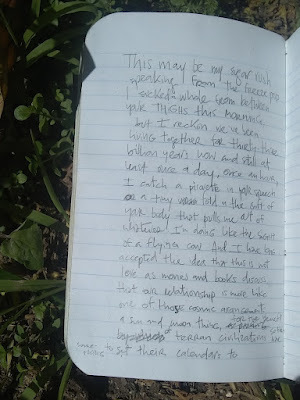 This may be my sugar rush
speaking from the freeze pop
I sucked whole from between
your THIGHS this morning
but I reckon we've been
living together for thirty three
billion years now and still at
least once a day, once an hour,
I catch a pirouette in your speech
or a tiny moon told in the cleft of
your body that pulls me out of
whatever I'm doing like the sight
of a flying cow And I have
accepted the idea that this is not
love as movies and books
that our relationship is more like
one of those cosmic arrangement
a sun and moon thing,
for
of terran civilizations
come to set their calendars to